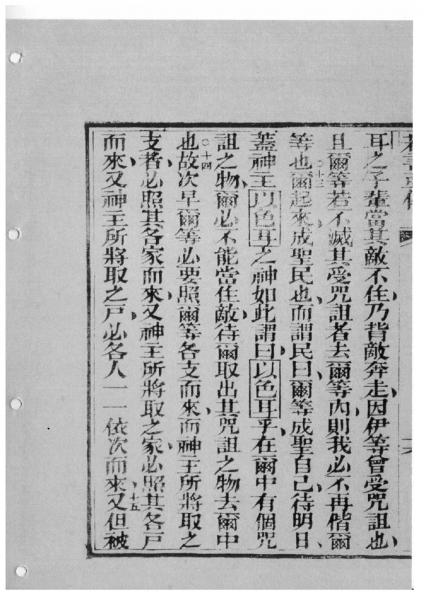 耳之子輩當其敵不住乃背敵奔走因伊等曾受咒詛也
且爾等若不滅其受咒詛者去爾等內則我必不再偕爾
十三
等也爾起來成聖民也而謂民曰爾等成聖自己待明日
蓋神主以色耳之神如此謂曰以色耳乎在爾中有個咒
詛之物爾必不能當住敵待爾取出其咒詛之物去爾中
十四
也故次早爾等必要照爾等各支而來而神主所將取之
支者必照其各家而來又神主所將取之家必照其各戶
而來又神主所將取之戶必各人一一依次而來又但被
十五